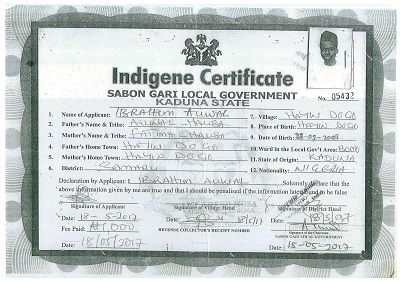 Indigene Certificate
SABON GARI LOCAL GOVERNMENT
KADUNA STATE
No. 05432
1. Name of Applicant: IBRAHIM AUWAL
2. Father's Name & Tribe: AUWAL HAUSA
3. Mother's Name & Tribe: FATIMA HAUSA
4. Father's Home Town: HAYIN DOGO
5. Mother's Home Town: HAYIN DOGO
6. District:
7. Village: HAYIN DOGO
8. Place of Birth: HAYIN DOGO
9. Date of Birth:
10. Ward in the Local Gov't Area:
11. State of Origin: KADUNA
12. Nationality: NIGERIA
Declaration by Applicant: I IBRAHIM AUWAL Solemnly declare that the
above information given by me are true and that I should be penalised if the information later found to be false
Signature of Applicant
Signature of Village Head
Signature of District Head
Date: 18-5-2017
Date: 18/5/17
Fee Paid: ₦1,000
18/05/2017
REVENUE COLLECTOR'S RECEIPT NUMBER
Signature of the Chairman
SABON GARI LOCAL GOVERNMENT
Date: 18-05-2017